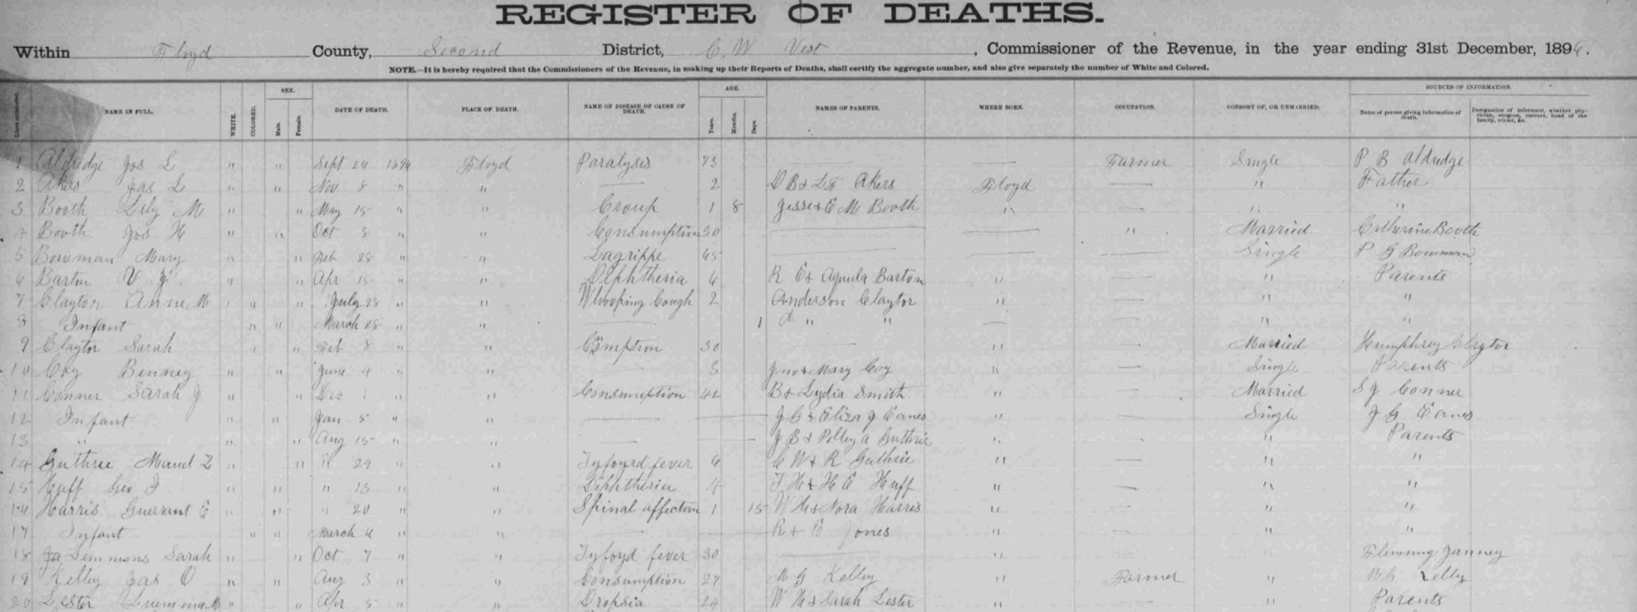 REGISTER OF DEATHS.
Within Floyd County, Second District, C. W. Vest, Commissioner of the Revenue, in the year ending 31st December, 1896.
NOTE.—It is hereby required that the Commissioners of the Revenue, in making up their Reports of Deaths, shall certify the aggregate number, and also give separately the number of White and Colored.
SEX. AGE. SOURCES OF INFORMATION.
NAME IN FULL. WHITE. COLORED. Male. Female. DATE OF DEATH. PLACE OF DEATH. NAME OF DISEASE OR CAUSE OF DEATH. Years. Months. Days. NAMES OF PARENTS. WHERE BORN. OCCUPATION. CONSORT OF, OR UNMARRIED. Name of person giving information of death. Designation of informant, whether physician, surgeon, coroner, head of the family, friend, &c.
1 Aldredge Jas L " " Sept 24 1896 Floyd Paralyses 73 — — Farmer Single P B Aldredge
2 Akers Jas L " " Nov 8 " " — 2 D B & L F Akers Floyd — " Father
3 Booth Lily M " " May 15 " " Croup 1 8 Jesse & E M Booth " — " "
4 Booth Jos H " " Oct 5 " " Consumption 50 — — " Married Catherine Booth
5 Bowman Mary " " Feb 28 " " Lagrippe 65 — — — Single P G Bowman
6 Barton V J " " Apr 15 " " Diphtheria 6 R E & Barton " — " Parents
7 Claytor Anne M " " July 28 " " Whooping Cough 2 Anderson Claytor " — " "
8 Infant " " March 28 " " — 1 " " " — " "
9 Claytor Sarah " " Feb 8 " " Conmption 30 — " — Married Humphrey Claytor
10 Coy Benney " " June 4 " " — 3 Jno & Mary Coy " — Single Parents
11 Conner Sarah J " " Dec 1 " " Consumption 42 B & Lydia Smith " — Married S J Conner
12 Infant " " Jan 5 " " — J G & Eliza J Eanes " — Single J G Eanes
13 " " " Aug 15 " " — J B & Polley A Guthrie " — " Parents
14 Guthrie Maud Z " " " 29 " " Tyfoyrd fever 6 C W & R Guthrie " — " "
15 Huff Geo " " " 13 " " Diphtheria 4 T H & H E Huff " — " "
16 Harris Guerrant E " " " 20 " " Spinal affection 1 15 W H & Nora Harris " — " "
17 Infant " " March 6 " " — R & E Jones " — " "
18 Lemmons Sarah " " Oct 7 " " Tyfoyd fever 30 — " — Flemming Janney
19 Kelley Jas O " " Aug 3 " " Consumption 27 M G Kelley " Farmer " M G Kelley
20 Lester " " Apr 5 " " Dropsia 24 W H & Sarah Lester " — " Parents